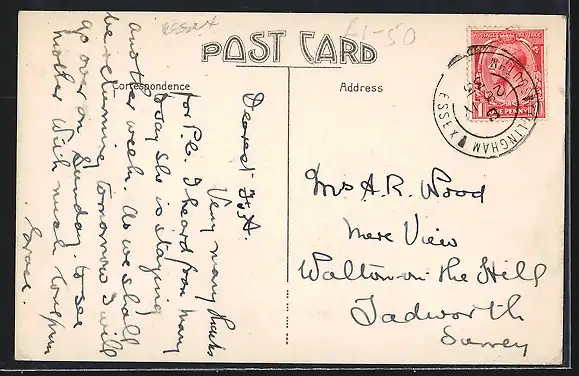 ESSEX
£1-50
POST CARD
Correspondence
Address
Dearest
Very many thanks
for P.c. I heard from many
today she is staying
another week. As we shall
be returning tomorrow I will
go over on Sunday to see
mother With much love from
Grace.
POSTAGE REVENUE
ONE PENNY
HELIONS BUMPSTEAD
ESSEX
Mrs A. R. Wood
Mere View
Walton-on-the Hill
Tadworth
Surrey